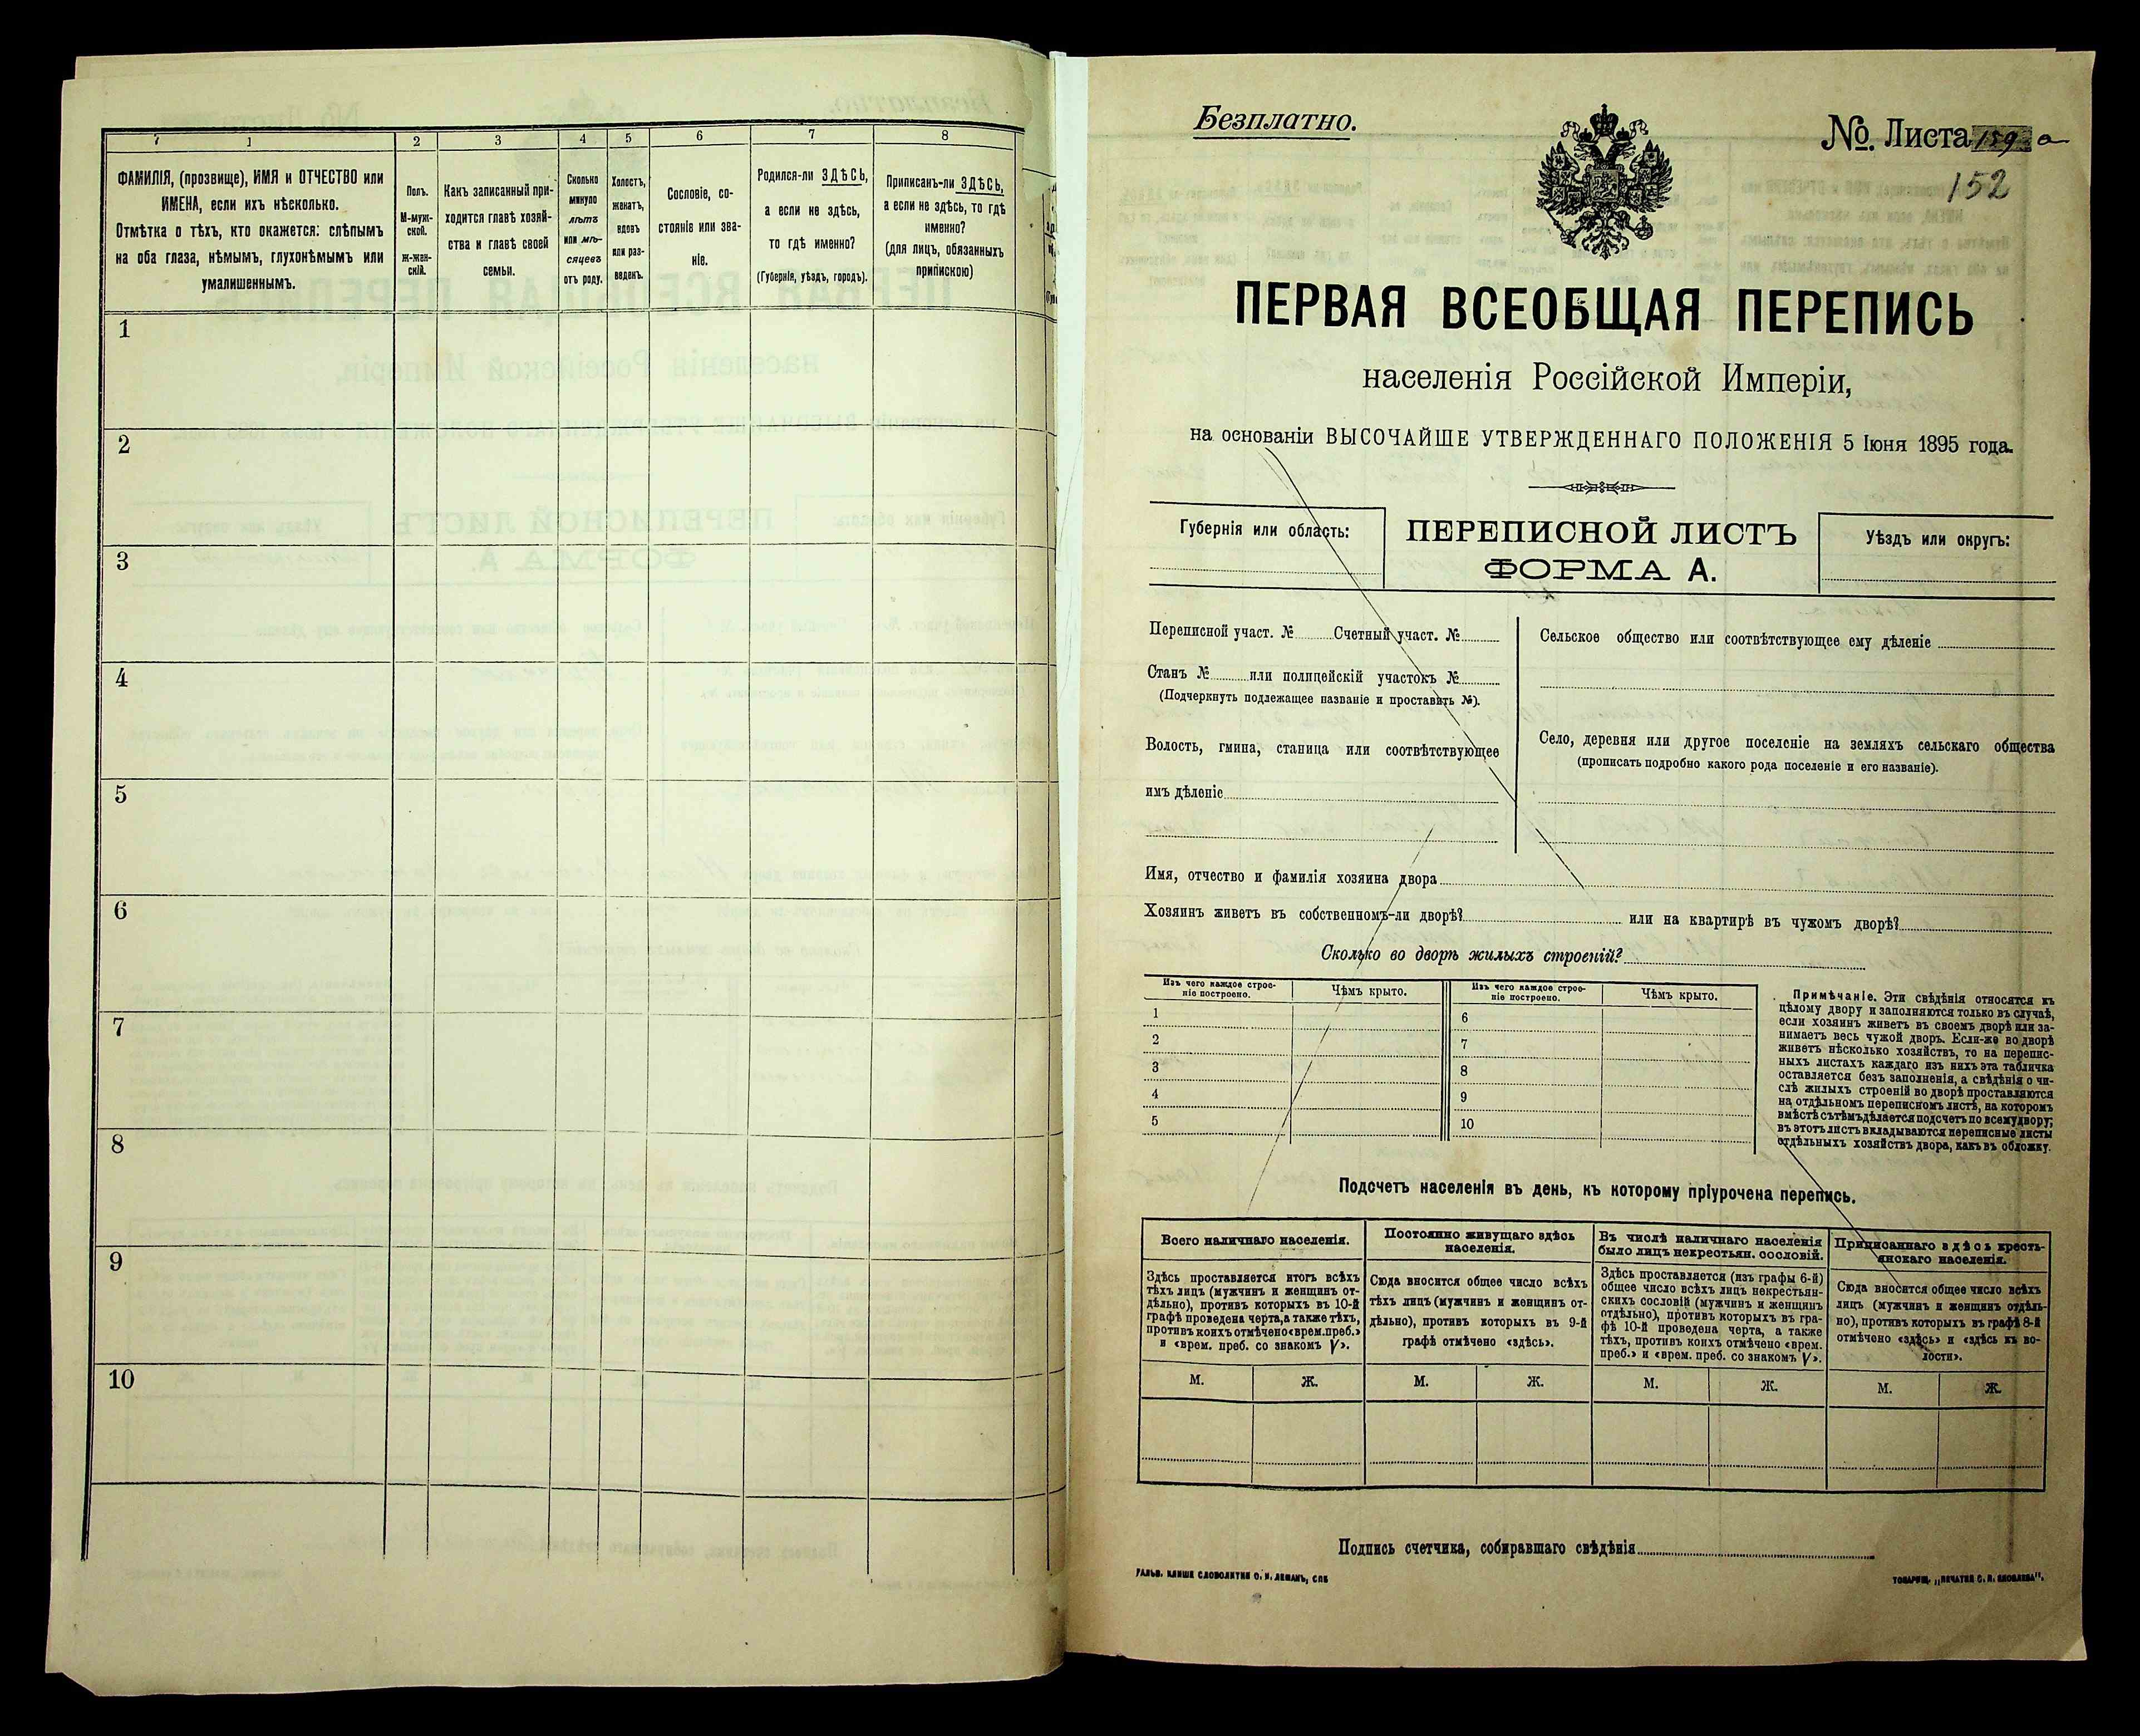 7 1 2 3 4 5 6 7 8
ФАМИЛІЯ, (прозвище), ИМЯ и ОТЧЕСТВО или
ИМЕНА, если ихъ нѣсколько.
Отмѣтка о тѣхъ, кто окажется: слѣпымъ
на оба глаза, нѣмымъ, глухонѣмымъ или
умалишеннымъ.
Полъ.
М-муж-
ской.
ж-жен-
скій.
Какъ записанный при-
ходится главѣ хозяй-
ства и главѣ своей
семьи.
Сколько
минуло
лѣтъ
или мѣ-
сяцевъ
отъ роду.
Холостъ,
женатъ,
вдовъ
или раз-
веденъ.
Сословіе, со-
стояніе или зва-
ніе.
Родился-ли ЗДѢСЬ,
а если не здѣсь,
то гдѣ именно?
(Губернія, уѣздъ, городъ).
Приписанъ-ли ЗДѢСЬ,
а если не здѣсь, то гдѣ
именно?
(для лицъ, обязанныхъ
припискою)
1
2
3
4
5
6
7
8
9
10
Безплатно.
№. Листа 159 а
152
ПЕРВАЯ ВСЕОБЩАЯ ПЕРЕПИСЬ
населенія Россійской Имперіи,
на основаніи ВЫСОЧАЙШЕ УТВЕРЖДЕННАГО ПОЛОЖЕНІЯ 5 Іюня 1895 года.
Губернія или область:
ПЕРЕПИСНОЙ ЛИСТЪ
ФОРМА А.
Уѣздъ или округъ:
Переписной участ. № Счетный участ. №
Станъ № или полицейскій участокъ №
(Подчеркнуть подлежащее названіе и проставить №).
Волость, гмина, станица или соотвѣтствующее
имъ дѣленіе
Сельское общество или соотвѣтствующее ему дѣленіе
Село, деревня или другое поселеніе на земляхъ сельскаго общества
(прописать подробно какого рода поселеніе и его названіе).
Имя, отчество и фамилія хозяина двора
Хозяинъ живетъ въ собственномъ-ли дворѣ? или на квартирѣ въ чужомъ дворѣ?
Сколько во дворѣ жилыхъ строеній?
Изъ чего каждое строе-
ніе построено.
Чѣмъ крыто.
Изъ чего каждое строе-
ніе построено.
Чѣмъ крыто.
1 6
2 7
3 8
4 9
5 10
Примѣчаніе. Эти свѣдѣнія относятся къ
цѣлому двору и заполняются только въ случаѣ,
если хозяинъ живетъ въ своемъ дворѣ или за-
нимаетъ весь чужой дворъ. Если-же во дворѣ
живетъ нѣсколько хозяйствъ, то на перепис-
ныхъ листахъ каждаго изъ нихъ эта табличка
оставляется безъ заполненія, а свѣдѣнія о чи-
слѣ жилыхъ строеній во дворѣ проставляются
на отдѣльномъ переписномъ листѣ, на которомъ
вмѣстѣ съ тѣмъ дѣлается подсчетъ по всему двору;
въ этотъ листъ вкладываются переписные листы
отдѣльныхъ хозяйствъ двора, какъ въ обложку.
Подсчетъ населенія въ день, къ которому пріурочена перепись.
Всего наличнаго населенія.
Здѣсь проставляется итогъ всѣхъ
тѣхъ лицъ (мужчинъ и женщинъ от-
дѣльно), противъ которыхъ въ 10-й
графѣ проведена черта, а также тѣхъ,
противъ коихъ отмѣчено «врем. преб.»
и «врем. преб. со знакомъ V».
Постоянно живущаго здѣсь
населенія.
Сюда вносится общее число всѣхъ
тѣхъ лицъ (мужчинъ и женщинъ от-
дѣльно), противъ которыхъ въ 9-й
графѣ отмѣчено «здѣсь».
Въ числѣ наличнаго населенія
было лицъ некрестьян. сословій.
Здѣсь проставляется (изъ графы 6-й)
общее число всѣхъ лицъ некрестьян-
скихъ сословій (мужчинъ и женщинъ
отдѣльно), противъ которыхъ въ гра-
фѣ 10-й проведена черта, а также
тѣхъ, противъ коихъ отмѣчено «врем.
преб.» и «врем. преб. со знакомъ V».
Приписаннаго здѣсь кресть-
янскаго населенія.
Сюда вносится общее число всѣхъ
лицъ (мужчинъ и женщинъ отдѣль-
но), противъ которыхъ въ графѣ 8-й
отмѣчено «здѣсь» и «здѣсь къ во-
лости».
М. Ж. М. Ж. М. Ж. М. Ж.
Подпись счетчика, собиравшаго свѣдѣнія
ГАЛЬВ. КЛИШЕ СЛОВОЛИТНИ О. И. ЛЕМАНЪ, СПБ
ТОВАРИЩ. „ПЕЧАТНЯ С. П. ЯКОВЛЕВА".